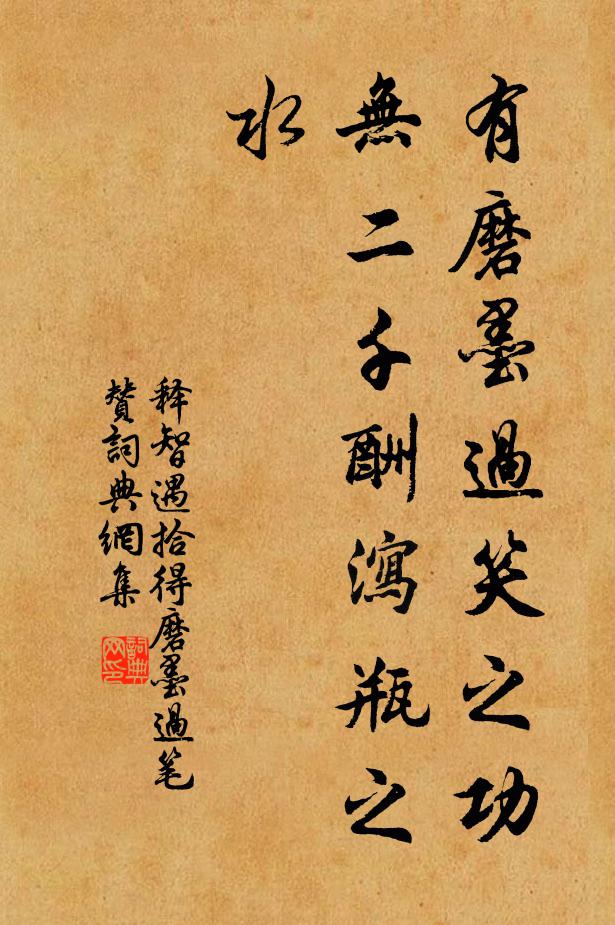 有磨墨過笑之功
無二千酬瀉瓶之
水
释智遇拾得磨墨過笔
賛詞典網集
詞典网印